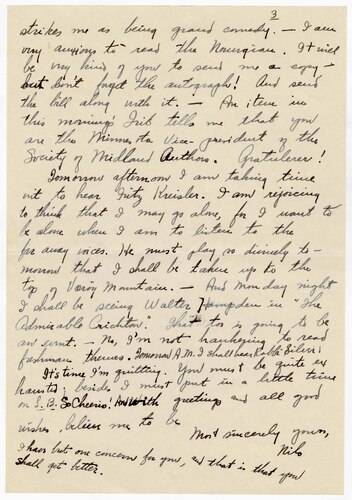 3
strikes me as being grand comedy. — I am
very anxious to read the Norwegian. It will
be very kind of you to send me a copy —
but don't forget the autograph! And send
the bill along with it. — An item in
this morning's Trib tells me that you
are the Minnesota vice-president of the
Society of Midland Authors. Gratulerer!
Tomorrow afternoon I am taking time
out to hear Fritz Kreisler. I am rejoicing
to think that I may go alone, for I want to
be alone when I am to listen to the
far away voices. He must play so divinely to-
morrow that I shall be taken up to the
top of Mountain. — And Monday night
I shall be seeing Walter Hampden in "The
Admirable Crichton." That too is going to be
an event. — No, I'm not hankering to read
freshman themes. Tomorrow A.M. I shall hear Rabbi
It's time I'm quitting. You must be quite ex
hausted; besides I must put in a little time
on So Cheerio! And with greetings and all good
wishes, believe me to be
Most sincerely yours,
Nils
I have but one concern for you, and that is that you
shall get better.